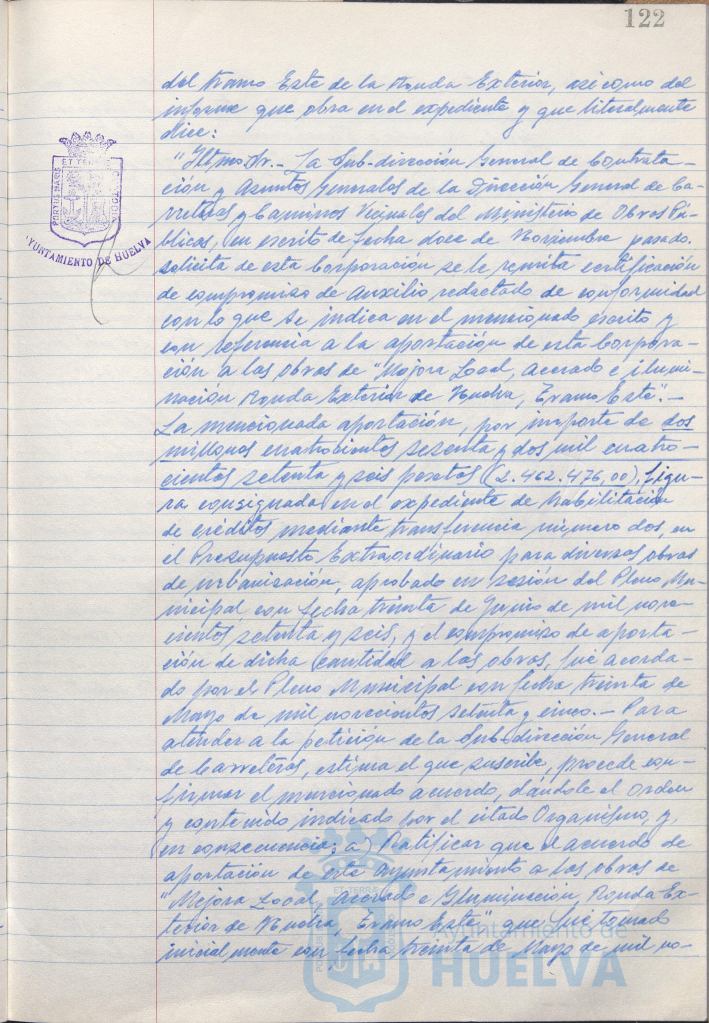 122
del tramo Este de la Ronda Exterior, asi como del
informe que obra en el expediente y que literalmente
dice:
"Iltmo. Sr.- La Sub-dirección General de Contrata-
ción y Asuntos Generales de la Dirección General de Ca-
rreteras y Caminos Vecinales del Ministerio de Obras Pú-
blicas, en escrito de fecha doce de Noviembre pasado,
solicita de esta Corporación se le remita certificación
de compromiso de auxilio redactado de conformidad
con lo que se indica en el mencionado escrito y
con referencia a la aportación de esta Corpora-
ción a las obras de "Mejora Local, acerado e ilumi-
nación Ronda Exterior de Huelva, Tramo Este".-
La mencionada aportación, por importe de dos
millones cuatrocientos sesenta y dos mil cuatro-
cientos setenta y seis pesetas (2.462.476,00), figu-
ra consignada en el expediente de habilitación
de créditos mediante transferencia número dos, en
el Presupuesto Extraordinario para diversas obras
de urbanización, aprobado en sesión del Pleno Mu-
nicipal con fecha treinta de Junio de mil nove-
cientos setenta y seis, y el compromiso de aporta-
ción de dicha cantidad a las obras, fue acorda-
do por el Pleno Municipal con fecha treinta de
Mayo de mil novecientos setenta y cinco.- Para
atender a la petición de la Sub-dirección General
de Carreteras, estima el que suscribe, procede con-
firmar el mencionado acuerdo, dándole el orden
y contenido indicado por el citado Organismo, y,
en consecuencia: a) Ratificar que el acuerdo de
aportación de este Ayuntamiento a las obras de
"Mejora Local, Acerado e Iluminación, Ronda Ex-
terior de Huelva, Tramo Este" que fue tomado
inicialmente con fecha treinta de Mayo de mil no-
PORTUS MARIS ET TERRAE CUSTODIA
AYUNTAMIENTO DE HUELVA
ET TERRAE
Ayuntamiento de
HUELVA